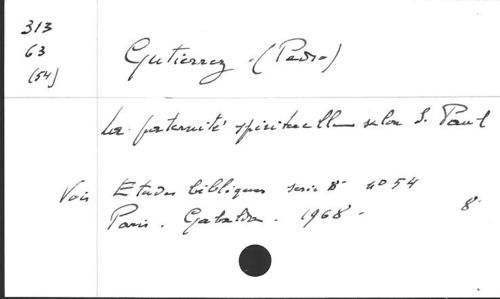 313
63
(54)
Gutierrez. (Pedro)
La paternité spirituelle selon S. Paul
Voir Etudes bibliques serie 8° n° 54
Paris. Gabalda. 1968. 8°